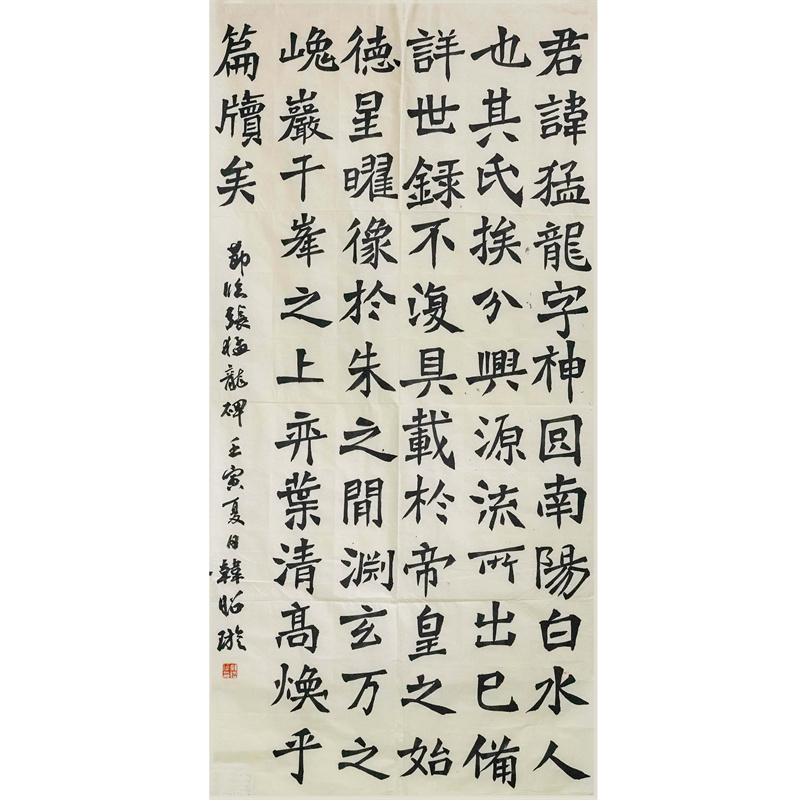 君諱猛龍字神囧南陽白水人
也其氏族分興源流所出已備
詳世録不復具載於帝皇之始
德星曜像於朱之間淵玄万之
巉巖千峯之上弈葉清高煥乎
篇牘矣
節临張猛龍碑壬寅夏日韓昭璇